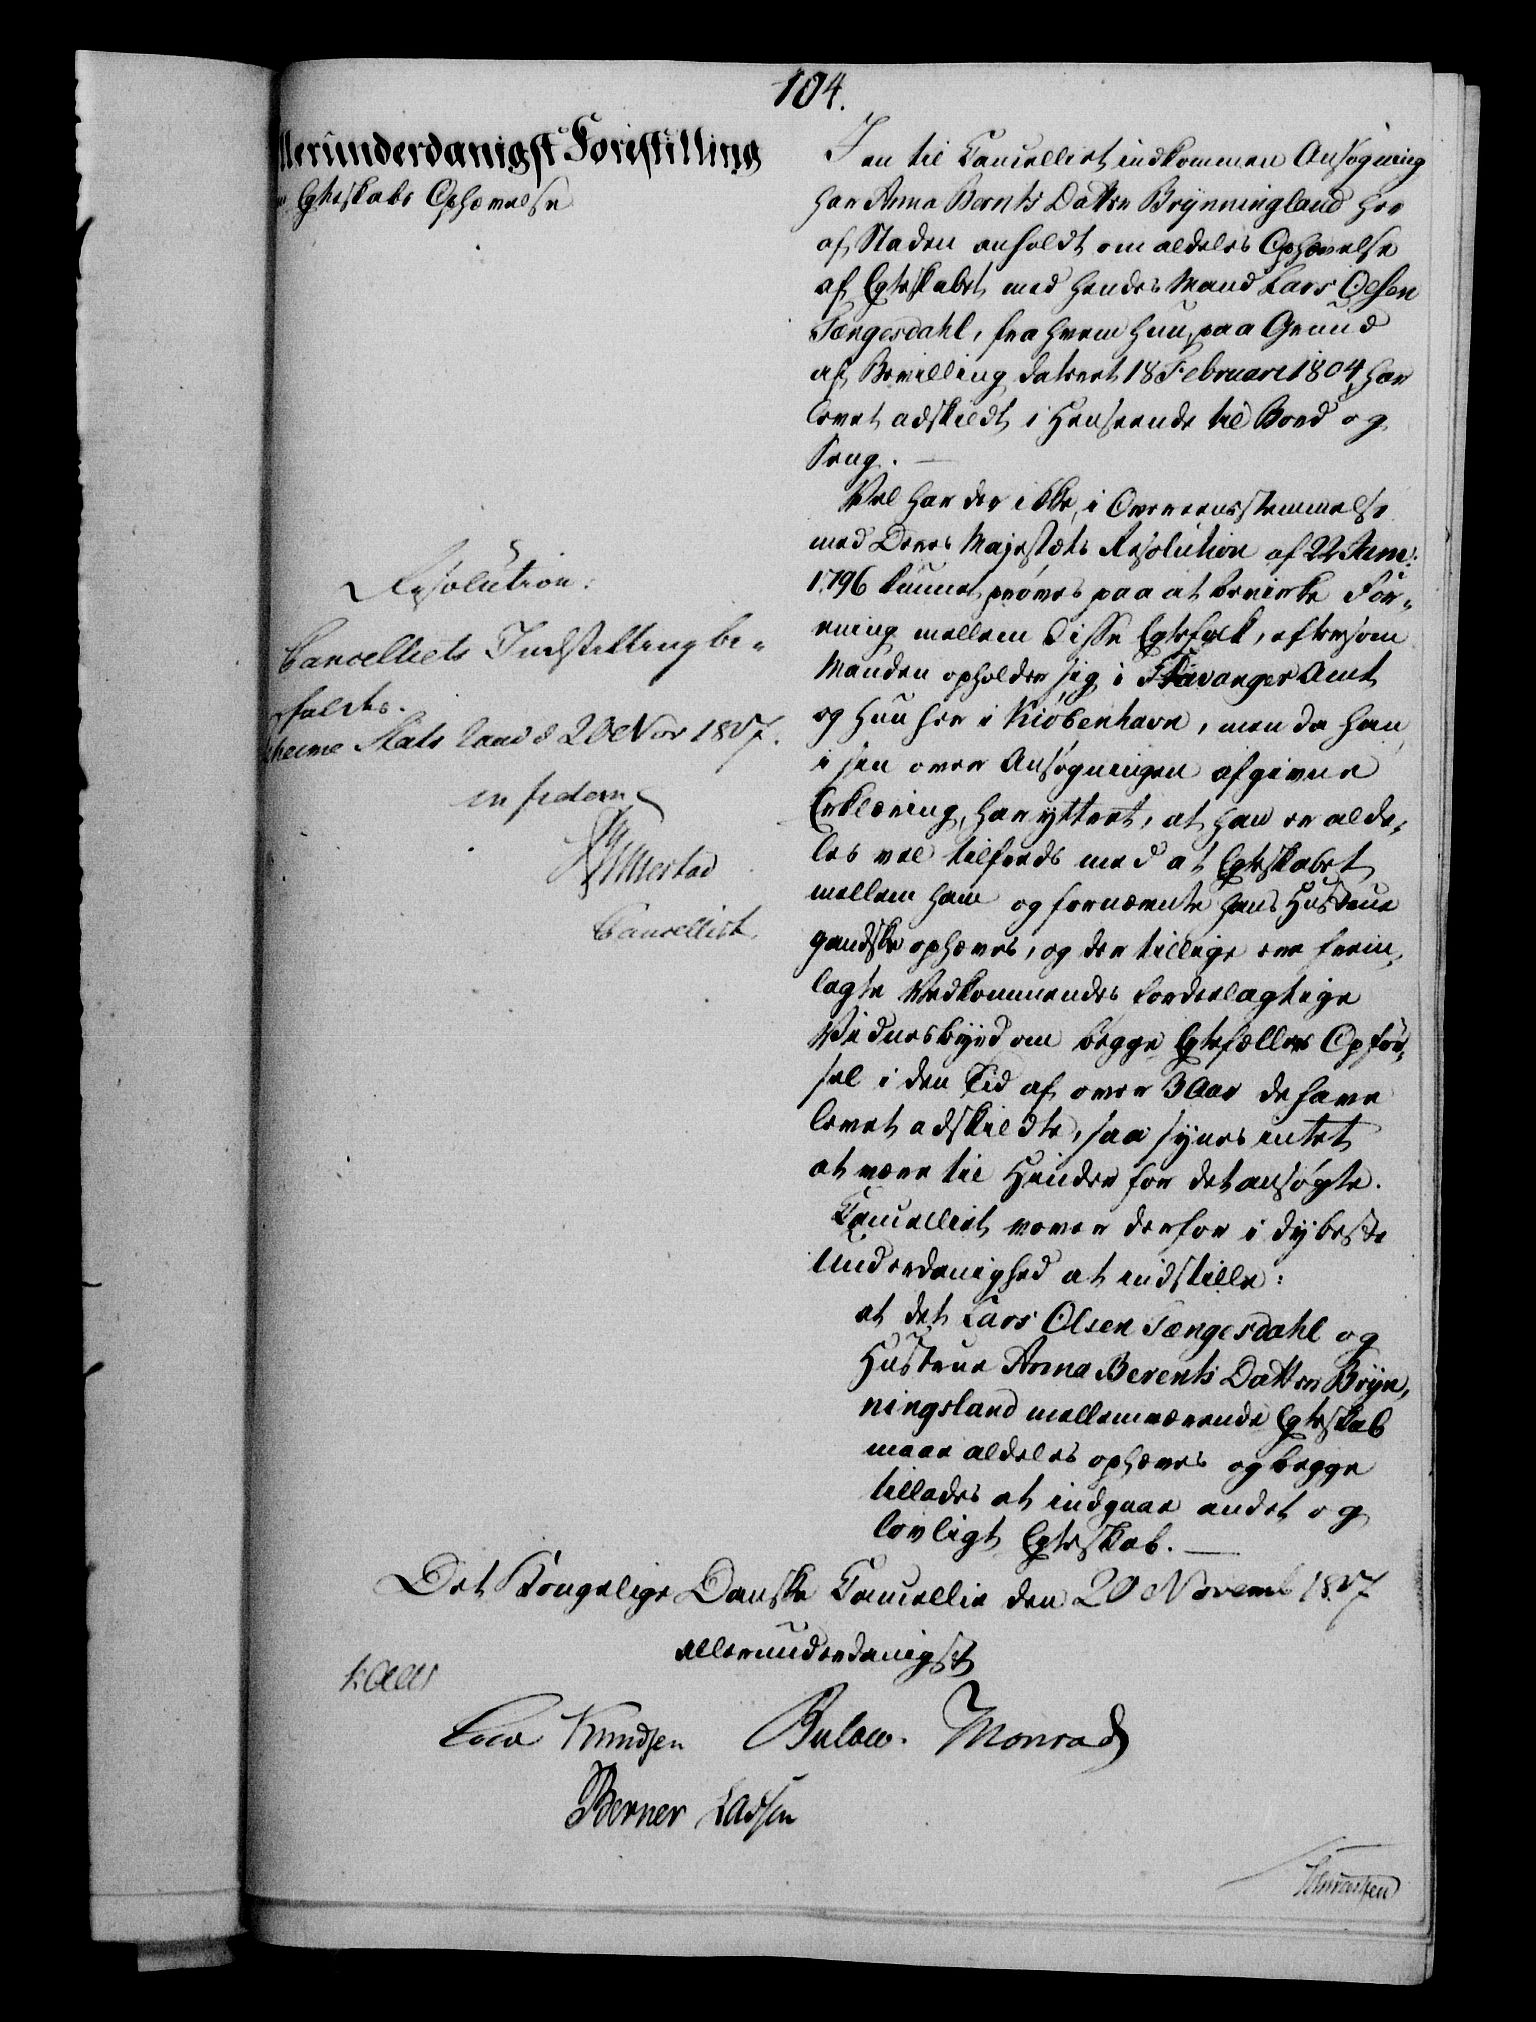 104.
Allerunderdanigst Forestilling
om Egteskabs Ophævelse
I en til Cancelliet indkommen Ansøgning
har Anna Bernts Datter Brynningland her
af Staden anholdt om aldeles Ophævelse
af Egteskabet med hendes Mand Lars Olsen
Tængesdahl, fra hvem hun, paa Grund
af Bevilling dateret 18 Februarii 1804, har
levet adskildt i Henseende til Bord og
Seng. —
Vel har der ikke, i Overeensstemmelse
med Deres Majestæts Resolution af 22 Janv:
1796 kunnet prøves paa at bevirke For-
ening mellem disse Egtefolk, eftersom
Manden opholder sig i Stavanger Amt
og hun her i Kiøbenhavn, men da han
i sin over Ansøgningen afgivne
Erklæring, har yttret, at han er alde-
les vel tilfreds med at Egteskabet
mellem ham og fornævnte hans Hustrue
gandske ophæves, og der tillige ere frem-
lagte Vedkommendes fordeelagtige
Vidnesbyrd om begge Egtefællers Opfør-
sel i den Tid af over 3 Aar de have
levet adskildte, saa synes intet
at være til Hinder for det ansøgte.
Cancelliet vover derfor i dybeste
Underdanighed at indstille:
at det Lars Olsen Tængesdahl og
Hustrue Anna Berents Datter Bryn-
ningsland mellemværende Egteskab
maae aldeles ophæves og begge
tillades at indgaae andet og
lovligt Egteskab. —
Resolution:
Cancelliets Indstilling bi-
faldes.
Geheime Stats Raad d 20 Nov 1807.
in fidem
Cancellist.
Det Kongelige Danske Cancellie den 20 Novemb 1807
allerunderdanigst
Kaas
Cold Knudsen Bulow. Monrad
Berner Lassen